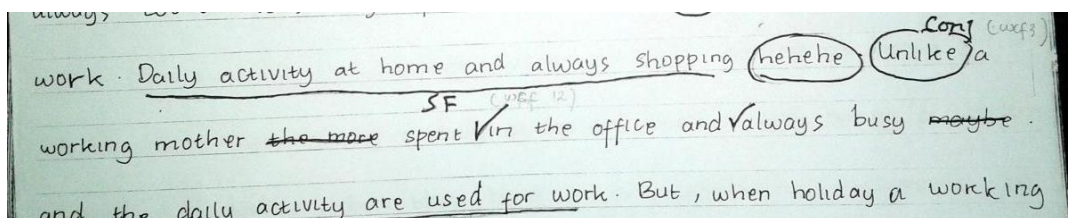 always
Conj (wcf3)
work. Daily activity at home and always shopping hehehe. Unlike a
SF (wcf 12)
working mother the more spent in the office and always busy maybe.
and the daily activity are used for work. But, when holiday a working